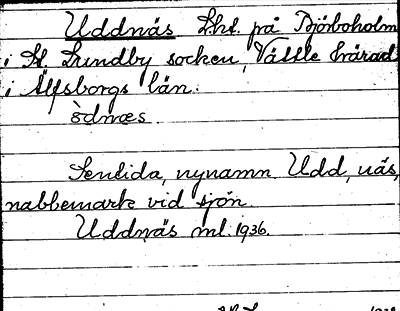 Uddnäs Lht. på Björboholm
i St. Lundby socken, Vättle härad
i Älfsborgs län.
òdnæs.
Sentida, nynamn Udd, näs,
nabbemark vid sjön.
Uddnäs ml. 1936.